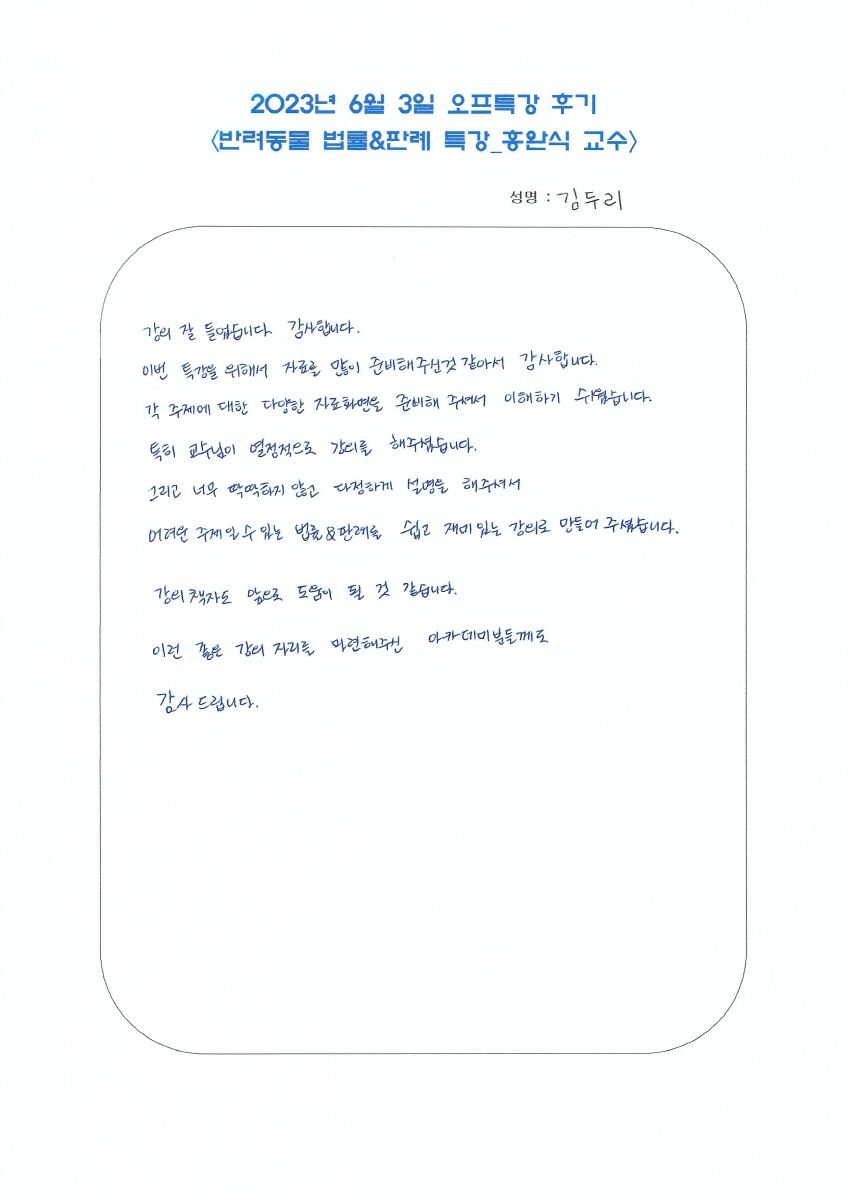 2023년 6월 3일 오프특강 후기
<반려동물 법률&판례 특강_홍완식 교수>
성명 : 김두리
강의 잘 들었습니다. 감사합니다.
이번 특강을 위해서 자료를 많이 준비해주신것 같아서 감사합니다.
각 주제에 대한 다양한 자료화면을 준비해 주셔서 이해하기 쉬웠습니다.
특히 교수님이 열정적으로 강의를 해주셨습니다.
그리고 너무 딱딱하지 않고 다정하게 설명을 해주셔서
어려운 주제일 수 있는 법률&판례를 쉽고 재미있는 강의로 만들어 주셨습니다.
강의 책자도 앞으로 도움이 될 것 같습니다.
이런 좋은 강의 자리를 마련해주신 아카데미분들께도
감사 드립니다.